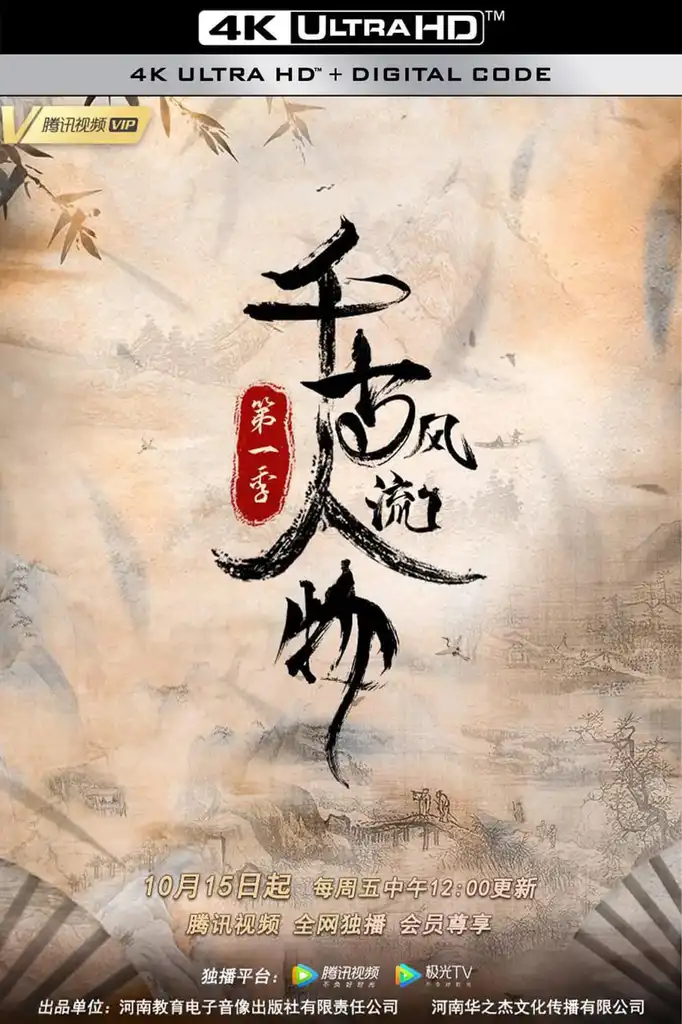 4K ULTRA HD™
4K ULTRA HD™ + DIGITAL CODE
腾讯视频 VIP
千古风流人物
第一季
10月15日起 每周五中午12:00更新
腾讯视频 全网独播 会员尊享
独播平台: 腾讯视频 不负好时光 极光TV 不负好时光
出品单位: 河南教育电子音像出版社有限责任公司 河南华之杰文化传播有限公司